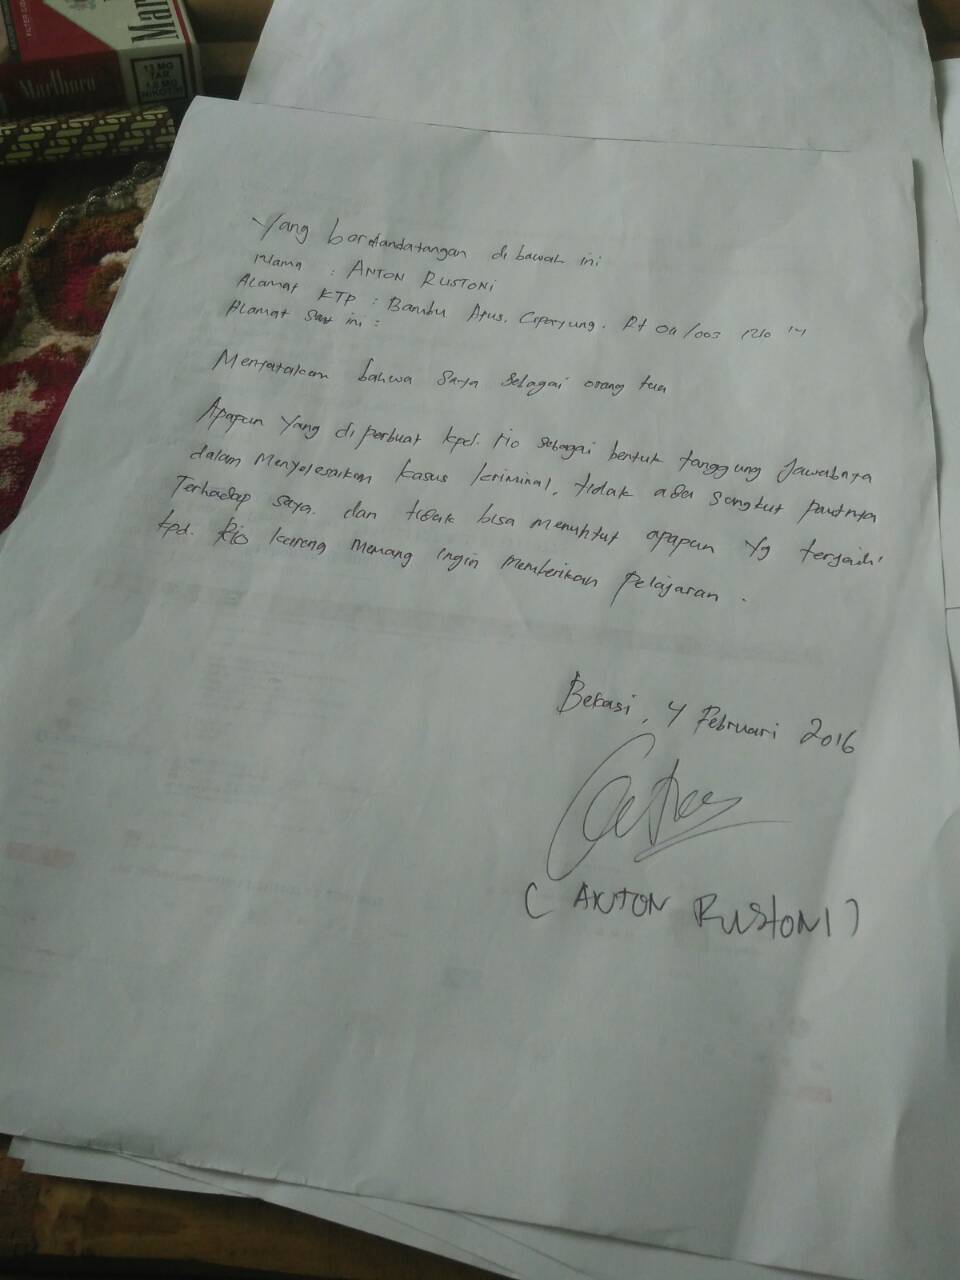 Marlboro
Mar
13 MG
TAR
1.0 MG
NIKOTIN
Yang bertandatangan di bawah ini
Nama : ANTON RUSTONI
Alamat KTP : Bambu Apus. Cipayung. Rt 04/003 No 14
Alamat saat ini :
Menyatakan bahwa saya sebagai orang tua
Apapun yang diperbuat kpd. rio sebagai bentuk tanggung Jawabnya
dalam menyelesaikan kasus kriminal, tidak ada sangkut pautnya
Terhadap saya. dan tidak bisa menuntut apapun yg terjadi
kpd. Rio karena memang ingin memberikan pelajaran.
Bekasi, 4 Februari 2016
(ANTON RUSTONI)